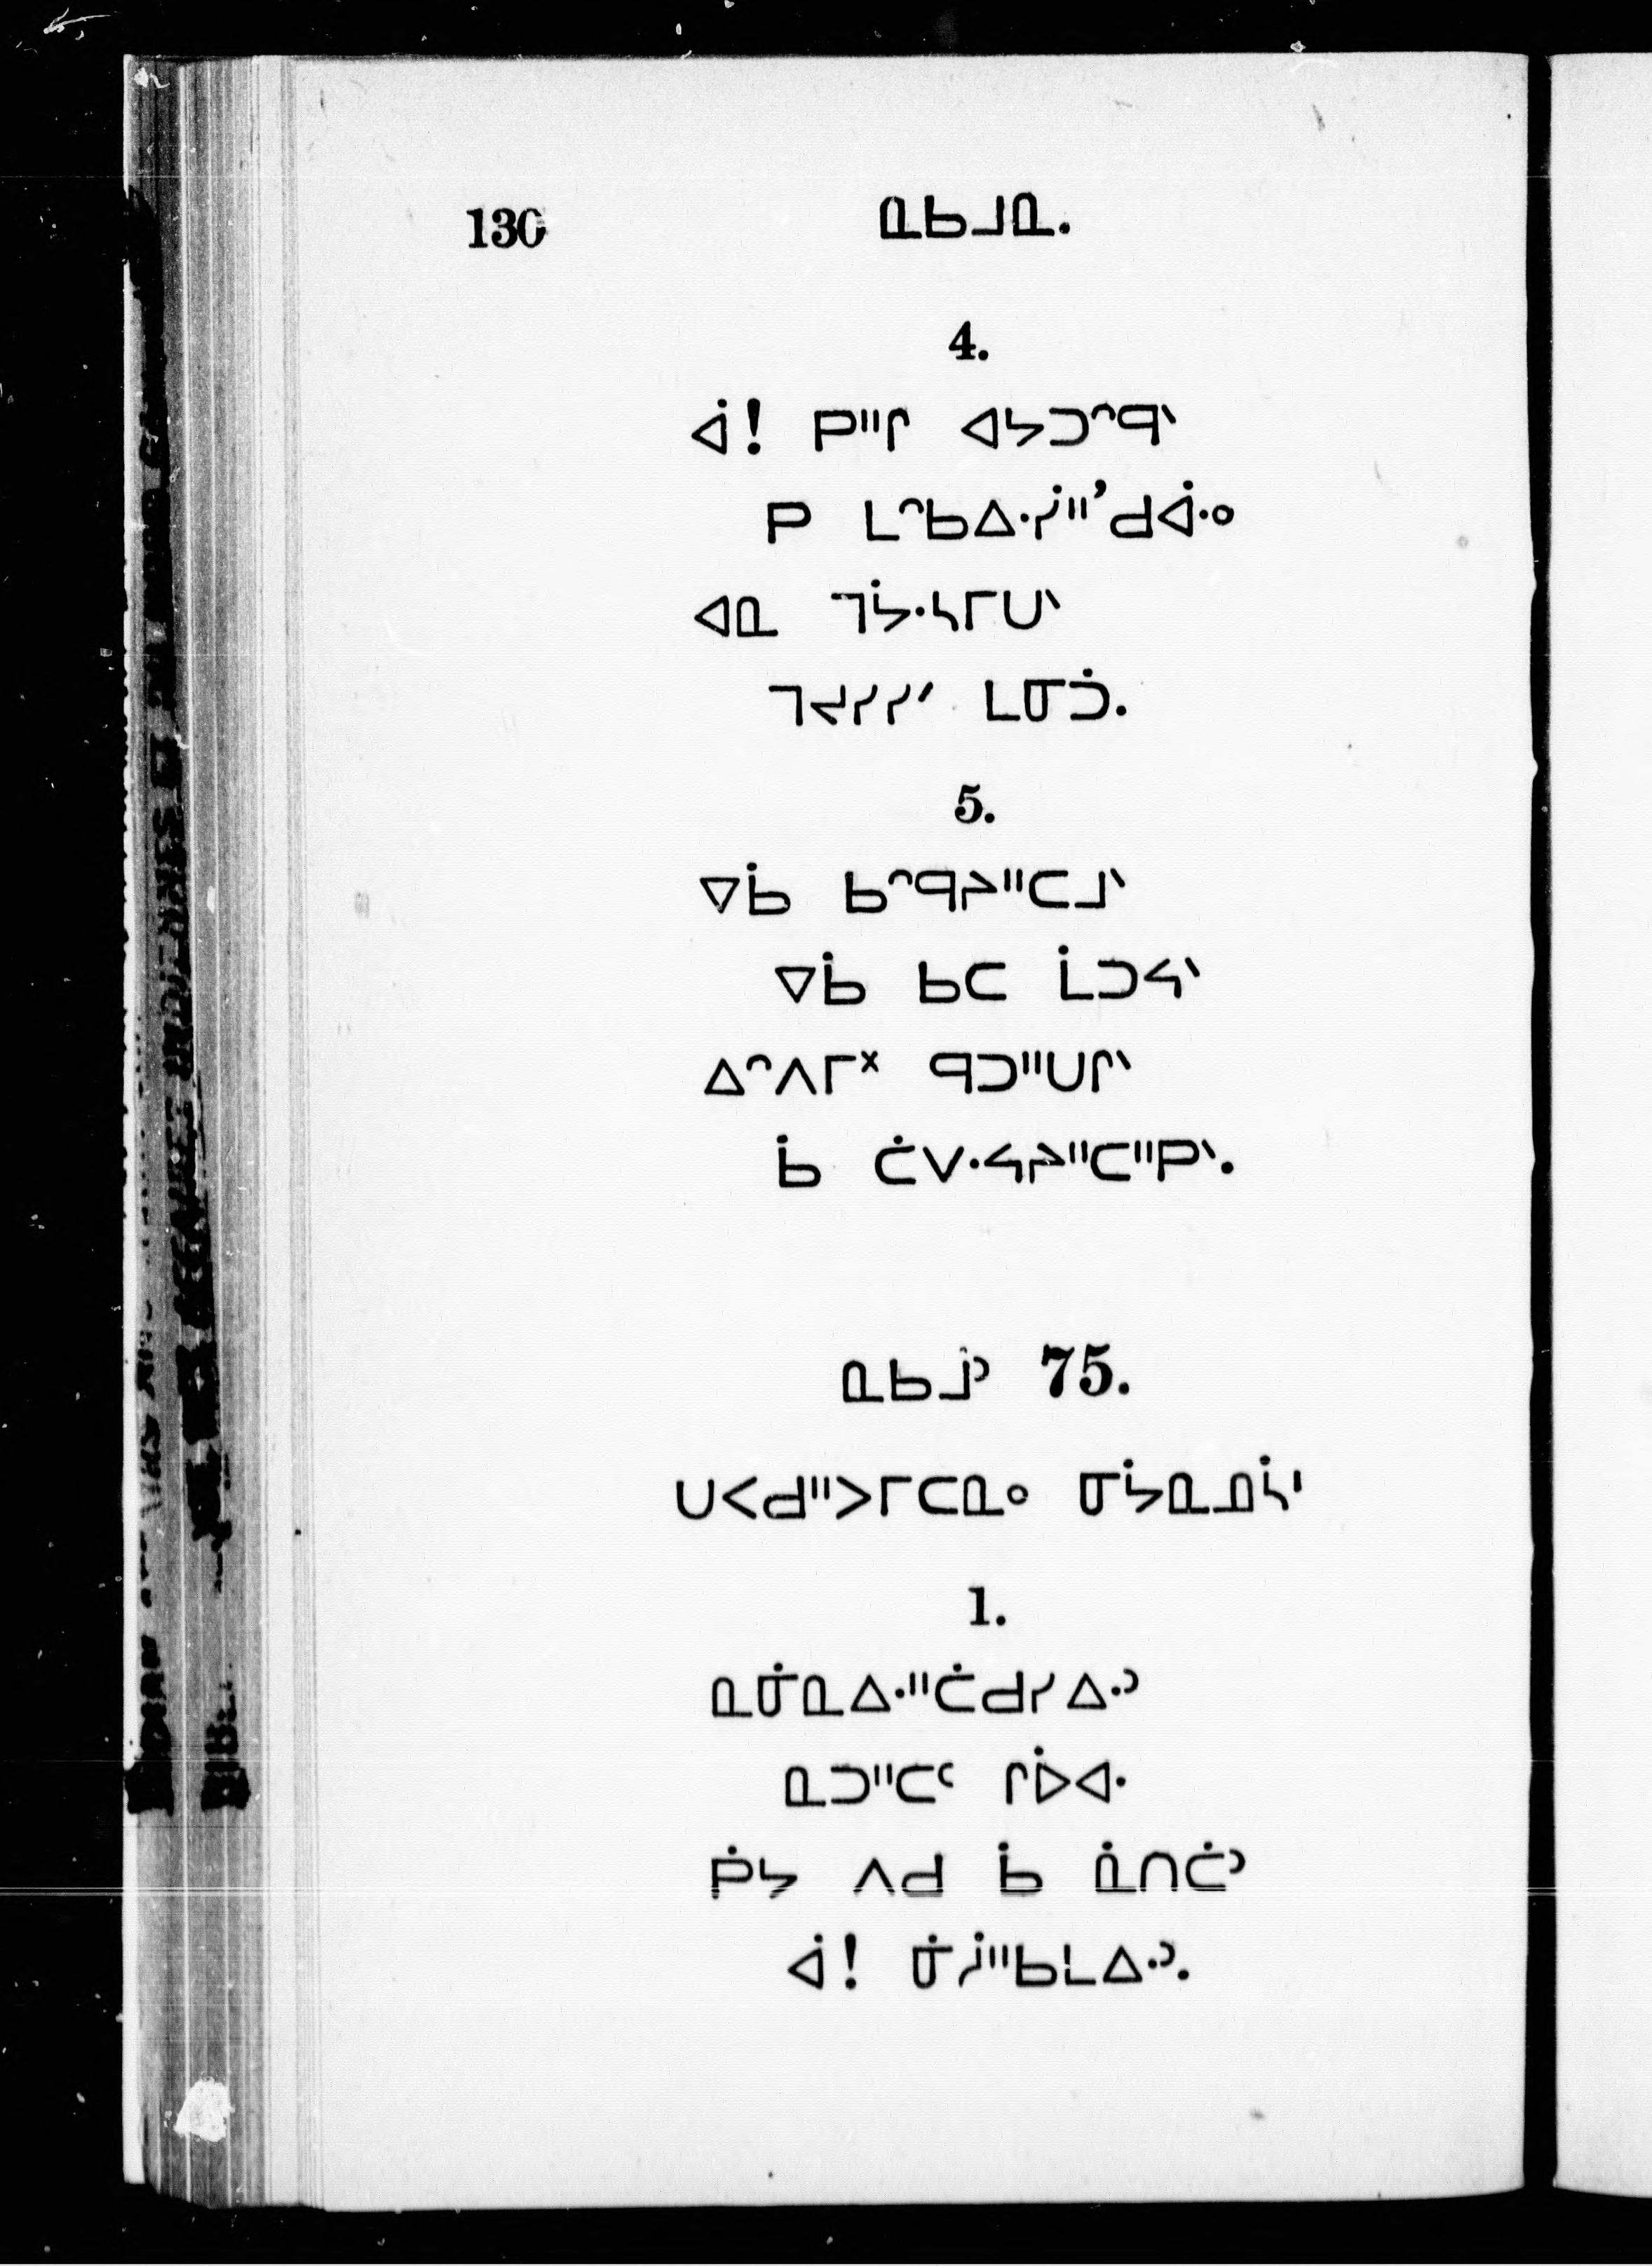 130 ᓇᑲᒧᓇ.
4.
ᐋ! ᑭᐦᒋ ᐊᔭᑐᐢᑫᐠ
ᑭ ᒪᐢᑲᐏᓰᐦ’ᑯᐚᐤ
ᐊᓇ ᒣᔮᐧᓴᒥᑌᐠ
ᒣᔪᓯᓯᐟ ᒪᓂᑑ.
5.
ᐁᑳ ᑲᐢᑫᔨᐦᑕᒧᐠ
ᐁᑳ ᑲᑕ ᒫᑐᔦᐠ
ᐃᐢᐱᒥᕽ ᑫᑐᐦᑌᒋᐠ
ᑳ ᑖᐯᐧᔦᔨᐦᑕᐦᑭᐠ.
ᓇᑲᒧᐣ 75.
ᑌᐸᑯᐦᐳᒥᑕᓇᐤ ᓂᔮᓇᓄᓵᑊ
1.
ᓇᓃᓇᐏᐦᑖᑯᓯᐏᐣ
ᓇᑐᐦᑕᐨ ᒌᐅᐊᐧ
ᑮᔭ ᐱᑯ ᑳ ᓈᑎᑖᐣ
ᐋ! ᓃᓰᐦᑲᒪᐏᐣ.